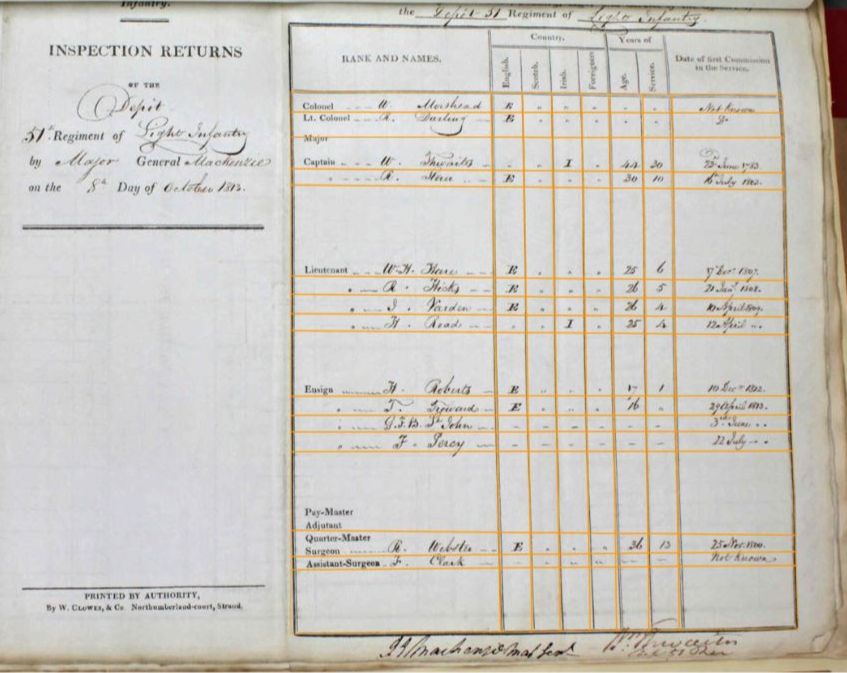 Infantry.
INSPECTION RETURNS
OF THE
Depôt
51st Regiment of Light Infantry
by Major General Mackenzie
on the 8th Day of October 1813.
PRINTED BY AUTHORITY,
By W. CLOWES, & Co. Northumberland-court, Strand.
the Depôt 51 Regiment of Light Infantry.
RANK AND NAMES. Country. Years of Date of first Commission in the Service.
English. Scotch. Irish. Foreigners Age. Service.
Colonel W. Morshead E Not known
Lt. Colonel R. Darling E Do
Major
Captain W. Thwaits I 44 30 June 1783.
R. E 30 10 July 1803.
Lieutenant W. H. Hare E 25 6 Decr 1807.
R. Hicks E 26 5 21 Jany 1808.
J. Varden E 26 4 April 1809.
H. Read I 25 4 12 April
Ensign H. Roberts E 17 1 10 Decr 1812.
T. E 16 29 April 1813.
St. John 3rd June
F. Percy 22 July
Pay-Master
Adjutant
Quarter-Master
Surgeon R. Webster E 36 13 25 Nov. 1800.
Assistant-Surgeon F. Clark Not known